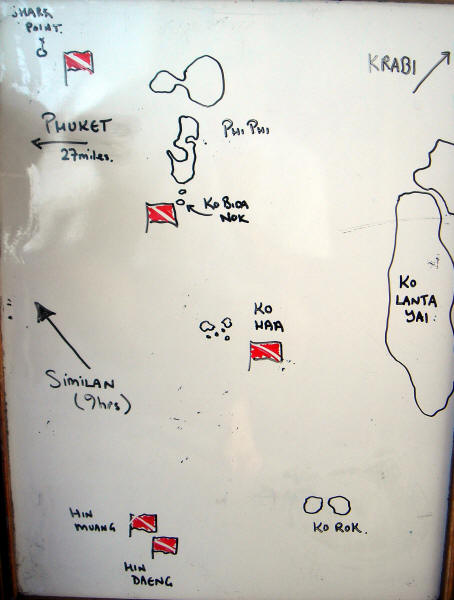 SHARK
POINT.
KRABI
PHUKET
27miles.
PHI PHI
KO BIDA
NOK
KO
LANTA
YAI
KO
HAA
SIMILAN
(9hrs)
HIN
MUANG
KO ROK.
HIN
DAENG